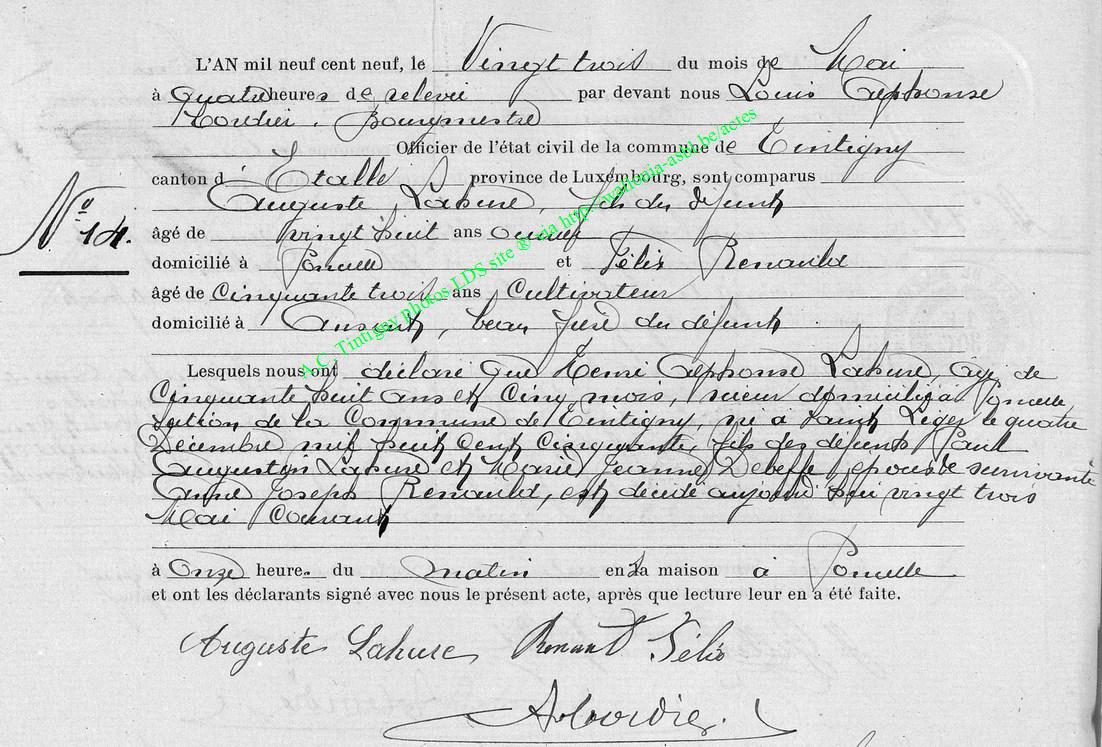 L'AN mil neuf cent neuf, le Vingt trois du mois de Mai
à quatre heures de relevée par devant nous Louis Alphonse
Hordier, Bourgmestre
Officier de l'état civil de la commune de Tintigny
canton d'Etalle province de Luxembourg, sont comparus
Auguste Lahure, fils du défunt
N° 14.
âgé de vingt huit ans
domicilié à Poncelle et Félix Renauld
âgé de Cinquante trois ans Cultivateur
domicilié à Ansart, beau frère du défunt
Lesquels nous ont déclaré que Henri Alphonse Lahure, âgé de
Cinquante huit ans et Cinq mois, domicilié à Poncelle
section de la Commune de Tintigny, né à Saint Léger le quatre
Décembre mil huit cent cinquante, fils des défunts Paul
Augustin Lahure et Marie Jeanne Debeffe, époux survivante
Anne Joseph Renauld, est décédé aujourd'hui vingt trois
Mai Courant
à Onze heures du matin en sa maison à Poncelle
et ont les déclarants signé avec nous le présent acte, après que lecture leur en a été faite.
Auguste Lahure Renauld Félix
A.C. Tintigny photos LDS site ® via http://wallonia-asbl.be/actes